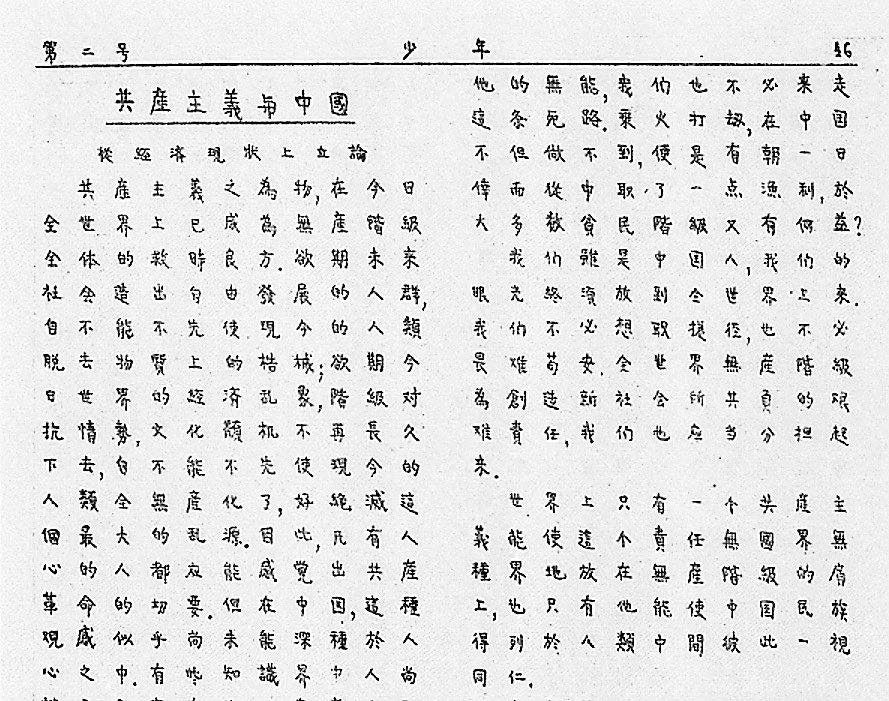 第二号 少年 46
共產主義与中國
從経済現狀上立論
共產主義之為物,在今日
全世界上已成為無產階級
全体的救時良方.欲期未來
社会造出自由發展的人群,
自不能不先使現今的人類
脱去物質上的梏械;欲期今
日世界的経済乱象,階級对
抗情勢,文化頽机不再長久
下去,自不能不先使現今的
人類全無產化了,好絶滅這
個最大的乱源.因此,凡有人
心的人都应能感覚出共產
革命的切要.但在中国,這種
观感似乎尚未能深種於人
心之中.有些知識界中人尚
他的無能,我們也不必来走
這条死路.乘火打劫,在中国
不但做不到,便是有朝一日
倖而從中取了一点漁利,於
大多数貧民階級又有何益?
我們雖是中国人,我們的
眼光終須放到全世界上来.
我們不必想取捷径,也不必
畏难苟安.全世界無產階級
為創造新社会所共負的艰
难責任,我們也应当分担起
来.
世界上只有一个共產主
義能使這个責任無國界無
種界地放在無產階級的肩
上,也只有他能使中国民族
得列於人類中間彼此一視
同仁.